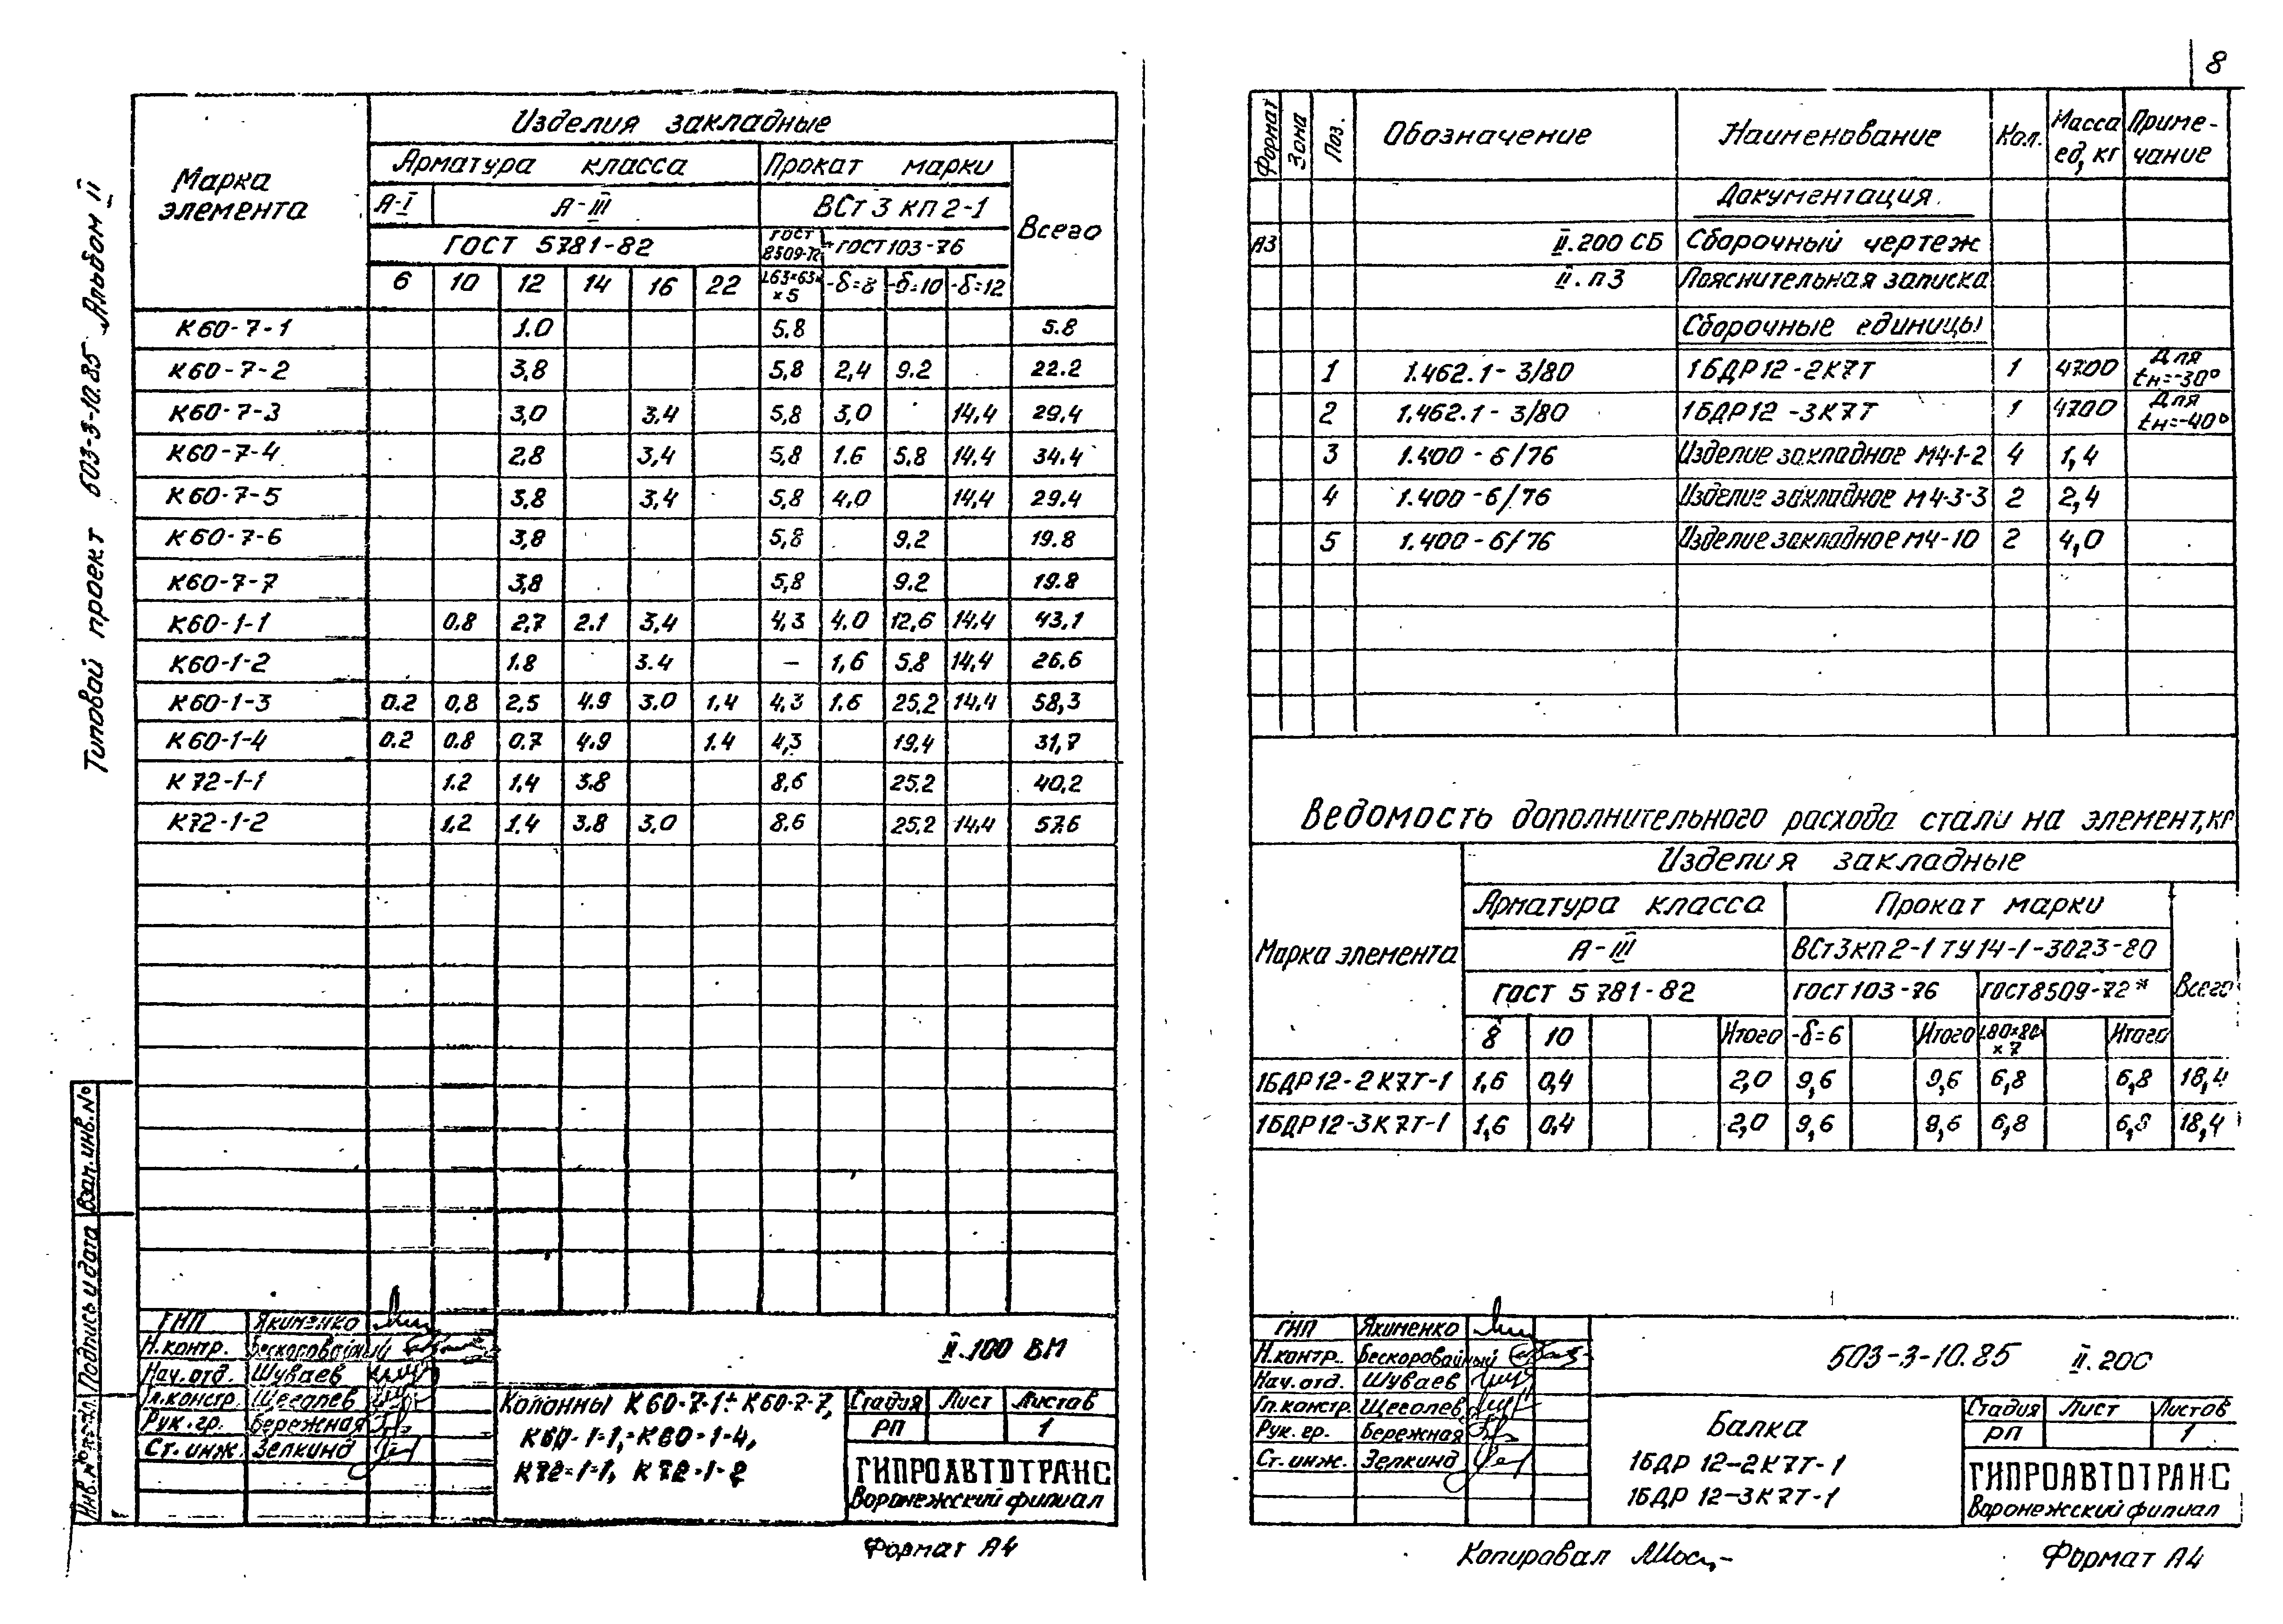 8
Типовой проект 503-3-10.85 Альбом II
Марка элемента
Изделия закладные
Арматура класса Прокат марки Всего
А-I А-III ВСт 3 кп 2-1
ГОСТ 5781-82 ГОСТ 8509-72 ГОСТ 103-76
6 10 12 14 16 22 L63×63×5 -δ=8 -δ=10 -δ=12
К60-7-1 1.0 5.8 5.8
К60-7-2 3,8 5,8 2,4 9.2 22.2
К60-7-3 3,0 3.4 5,8 3,0 14.4 29.4
К60-7-4 2,8 3,4 5,8 1.6 5.8 14.4 34.4
К60-7-5 3,8 3,4 5,8 4,0 14,4 29.4
К60-7-6 3,8 5,8 9.2 19.8
К60-7-7 3,8 5,8 9.2 19.8
К60-1-1 0.8 2,7 2.1 3,4 4,3 4.0 12,6 14,4 43,1
К60-1-2 1.8 3.4 – 1,6 5.8 14,4 26.6
К60-1-3 0.2 0,8 2,5 4.9 3.0 1,4 4,3 1.6 25.2 14,4 58,3
К60-1-4 0.2 0.8 0.7 4.9 1.4 4,3 19.4 31,7
К72-1-1 1.2 1,4 3.8 8,6 25.2 40,2
К72-1-2 1,2 1.4 3.8 3,0 8.6 25,2 14,4 57.6
Взам. инв. №
Подпись и дата
Инв. № подл.
ГИП Якименко
Н.контр. Бескоровайный
Нач. отд. Шуваев
Гл.констр. Щеголев
Рук. гр. Бережная
Ст. инж. Зелкинд
II.100 ВМ
Колонны К60-7-1÷К60-7-7,
К60-1-1,÷К60-1-4,
К72-1-1, К72-1-2
Стадия Лист Листов
РП 1
ГИПРОАВТОТРАНС
Воронежский филиал
Формат А4
Формат Зона Поз. Обозначение Наименование Кол. Масса ед, кг Примечание
Документация
А3 II.200 СБ Сборочный чертеж
II.ПЗ Пояснительная записка
Сборочные единицы
1 1.462.1-3/80 1БДР12-2К7Т 1 4700 Для tн=-30°
2 1.462.1-3/80 1БДР12-3К7Т 1 4700 Для tн=-40°
3 1.400-6/76 Изделие закладное М4-1-2 4 1,4
4 1.400-6/76 Изделие закладное М4-3-3 2 2,4
5 1.400-6/76 Изделие закладное М4-10 2 4,0
Ведомость дополнительного расхода стали на элемент, кг
Марка элемента
Изделия закладные
Арматура класса Прокат марки
А-III ВСт3кп 2-1 ТУ 14-1-3023-80
ГОСТ 5781-82 ГОСТ 103-76 ГОСТ 8509-72* Всего
8 10 Итого -δ=6 Итого L80×80×7 Итого
1БДР12-2К7Т-1 1,6 0,4 2,0 9,6 9,6 6,8 6,8 18,4
1БДР12-3К7Т-1 1,6 0,4 2,0 9,6 9,6 6,8 6,8 18,4
ГИП Якименко
Н.контр. Бескоровайный
Нач. отд. Шуваев
Гл. констр. Щеголев
Рук. гр. Бережная
Ст. инж. Зелкинд
503-3-10.85 II.200
Балка
1БДР 12-2К7Т-1
1БДР 12-3К7Т-1
Стадия Лист Листов
РП 1
ГИПРОАВТОТРАНС
Воронежский филиал
Копировал
Формат А4